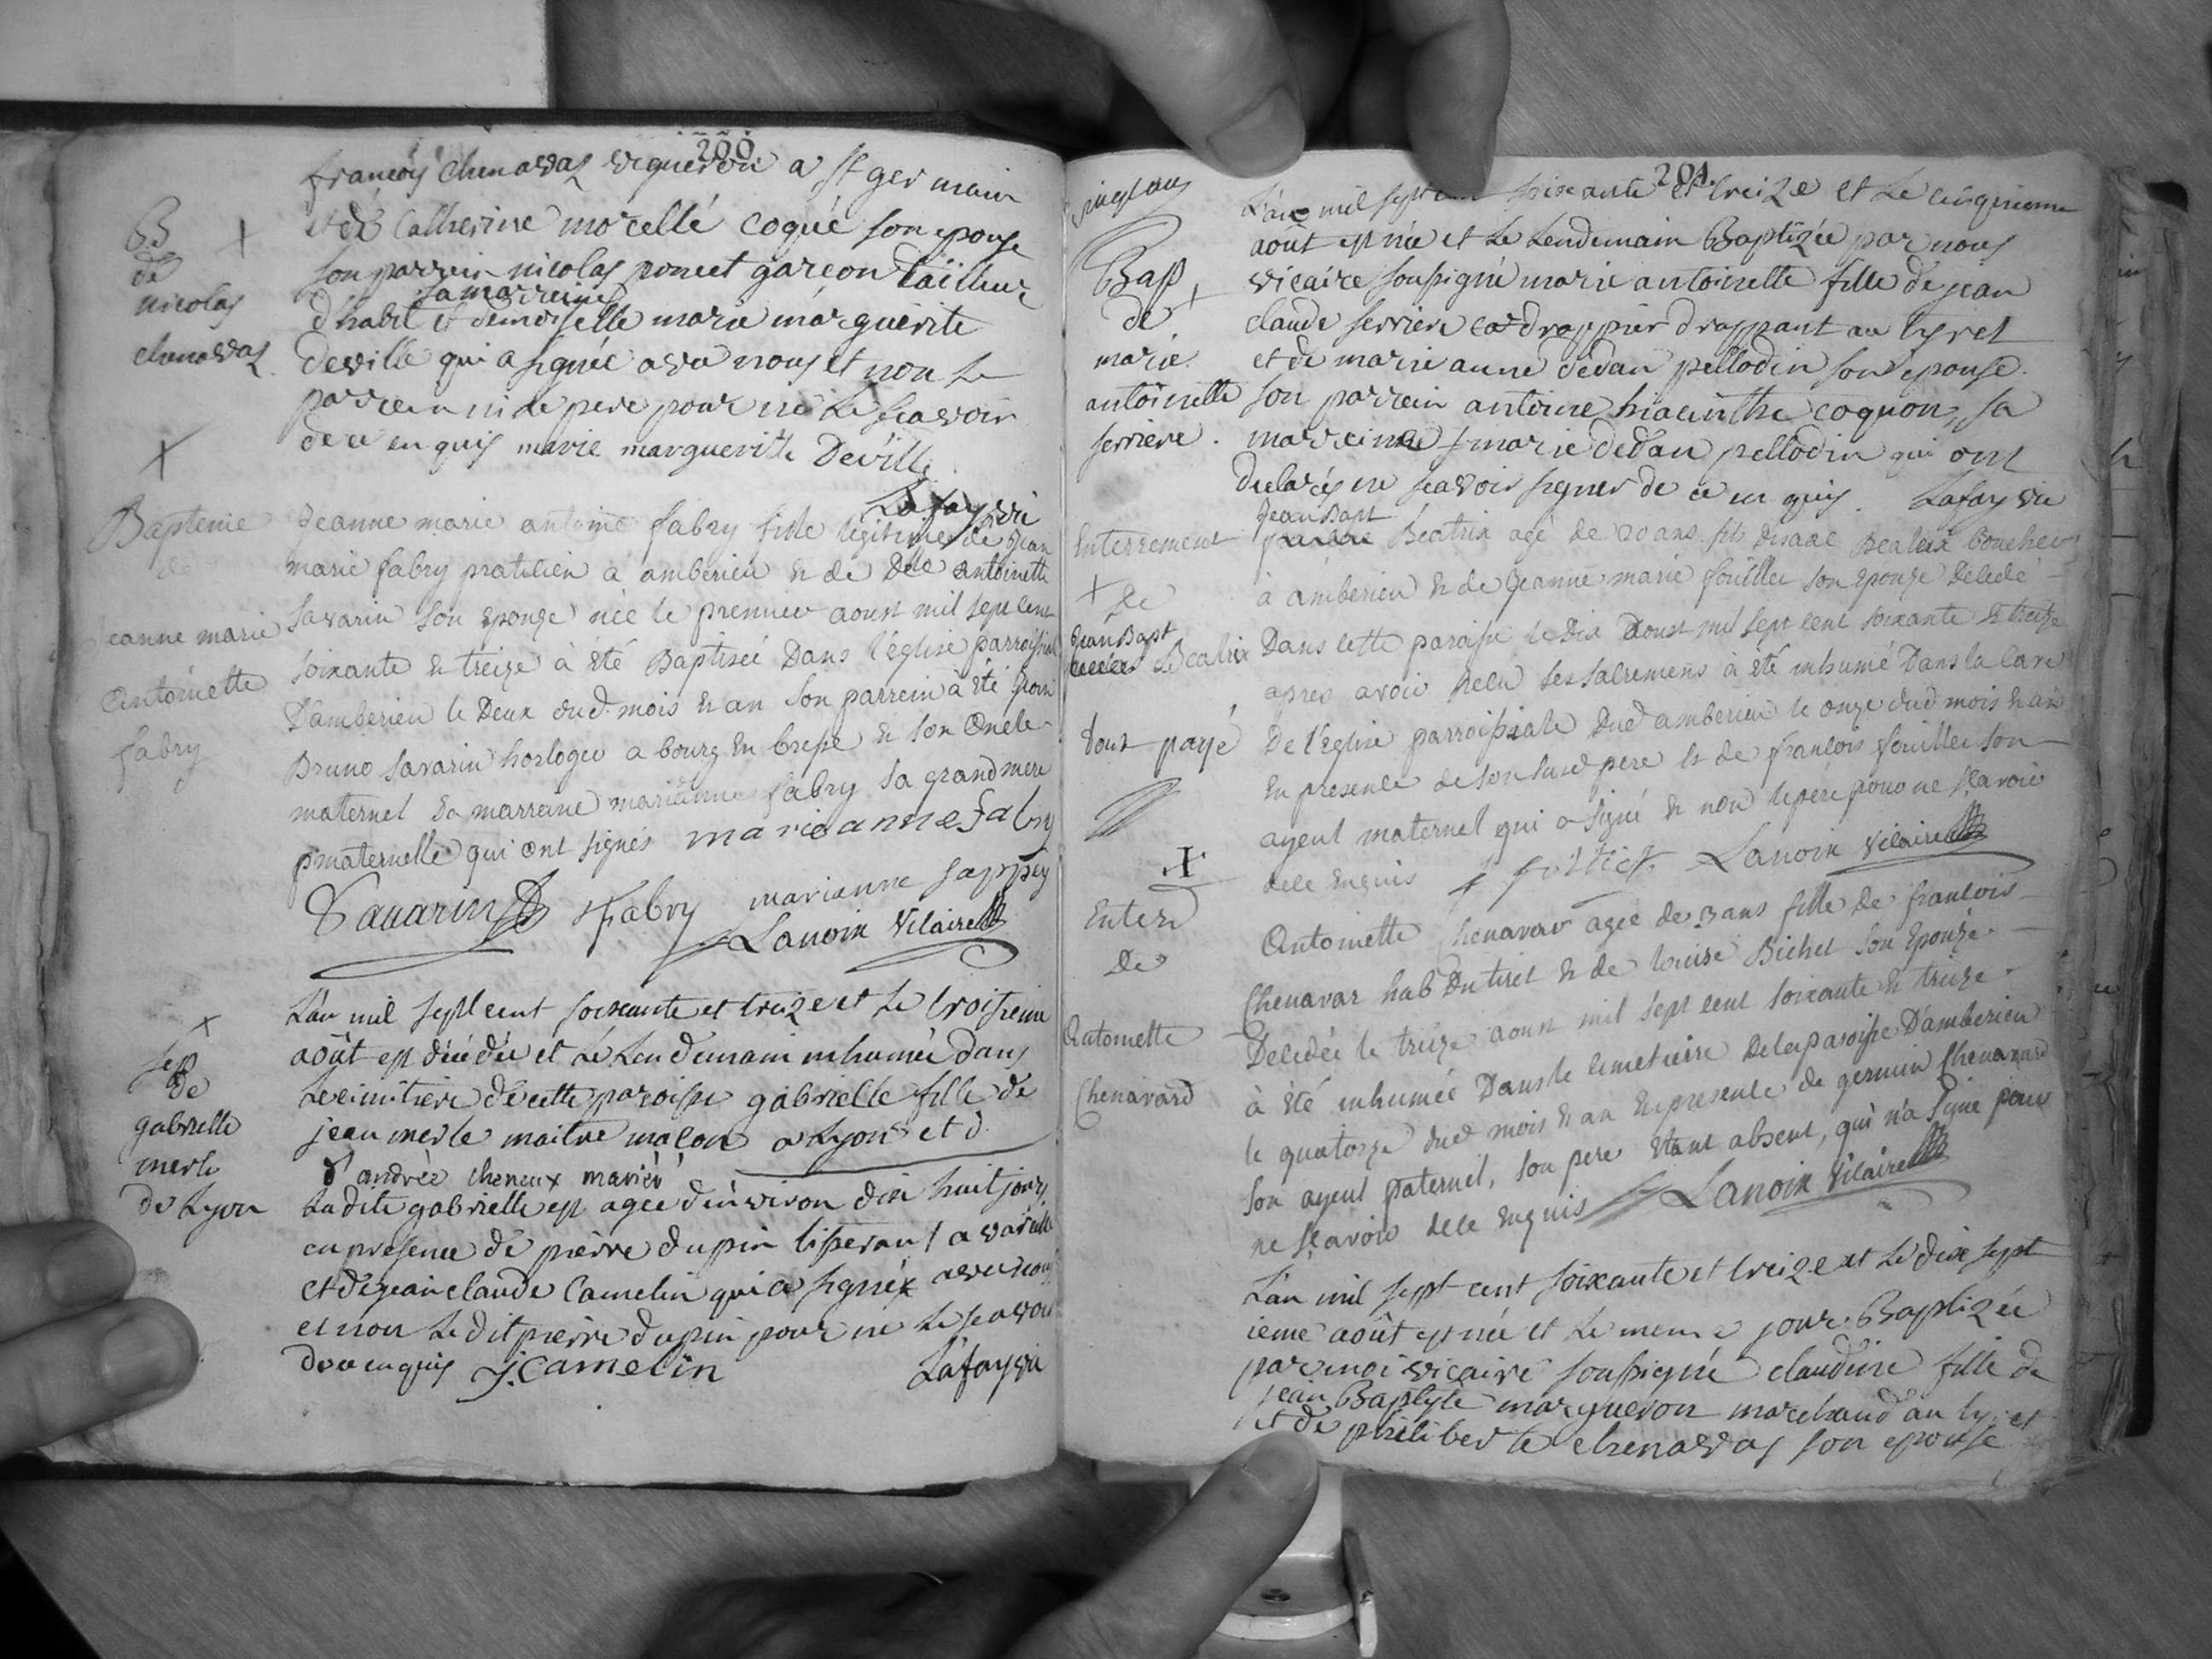 200
françois chenavaz vigneron a st germain
et de Catherine morcellé coqué son epouse
son parrein nicolas poncet garçon tailleur
sa marreine
d'habit et demoiselle marie marguerite
deville qui a signée avec nous et non le
parrein ni le pere pour ne le scavoir
de ce enquis marie marguerite Deville
Lafay vic
B
de
nicolas
chenavaz
Bapteme
de
jeanne marie
Antoinette
fabry
Jeanne marie antoine fabry fille legitime de Jean
marie fabry praticien à amberieu & de Dlle antoinette
Savarin son epouze née le premier aoust mil sept cent
soixante & treize à été Baptisée Dans l'église parroissial
D'amberieu le Deux dud. mois & an son parrein à été
Bruno Savarin horloger a bourg En bresse & son Oncle
maternel Sa marreine marianne fabry sa grand mere
pmaternelle qui ont signés marie anne fabry
Savarin fabry marianne sappey
Lanoix Vicaire
Sep
de
gabrielle
merle
de Lyon
L'an mil sept cent soixante et treize et le troisieme
août est décédée et le lendemain inhumée dans
le cimitiere de cette paroisse gabrielle fille de
jean merle maitre maçon a Lyon et d
d'andrée cheneux mariés
la dite gabrielle est agée d'environ dix huit jours
en presence de pierre dupin tisserant a
et de jean claude Camelin qui a signé avec nous
et non le dit pierre dupin pour ne le scavoir
de ce enquis J. Camelin Lafay vic
201
Bap
de
marie
antoinette
serriere
L'an mil sept cent soixante et treize et le cinquieme
août est née et le lendemain Baptizée par nous
vicaire soussigné marie antoinette fille de jean
claude serriere drappier drappant au tyret
et de marie anne dedan pellodin son epouse
son parrein antoine hiacinthe coquon, sa
marreine marie dedan pellodin qui ont
declarés ne scavoir signer de ce enquis. Lafay vic
Enterrement
de
Jean Bapt
Beatrix
tout payé
Jean Bapt
Beatrix agé de 20 ans fils d'isaac Beatrix boucher
à amberieu & de Jeanne marie fouillet son epouze Decedé
Dans cette paroisse le Dix Aoust mil sept cent soixante & treize
apres avoir recu ses sacremens à été inhumé Dans la cave
De l'église parroissiale Dud amberieu le onze dud mois & an
En presence de son susd pere & de françois fouillet son
ayeul maternel qui a signé & non le pere pour ne scavoir
de ce enquis Lanoix Vicaire
Enter
De
Antoinette
Chenavard
Antoinette Chenavar agée de 3 ans fille de françois
Chenavar hab Du tiret & de louise Bichet son Epouze
Decedée le treize aoust mil sept cent soixante & treize
à été inhumée Dans le cimetiere De la paroisse D'amberieu
le quatorze dud mois & an En presence de germain Chenavard
son ayeul paternel, son pere étant absent, qui n'a signé pour
ne scavoir de ce enquis Lanoix Vicaire
L'an mil sept cent soixante et treize et le dix sept
ieme août est née et le meme jour Baptizée
par moi vicaire soussigné claudine fille de
jean Baptiste margueron marchand au tyret
et de philiberte chenavas son epouse